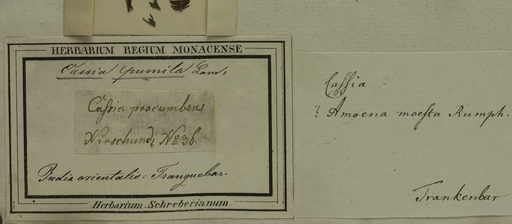 HERBARIUM REGIUM MONACENSE
Cassia pumila Lam,
Cassia procumbens
Nirschundi No 38.
India orientalis: Tranquebar.
Herbarium Schreberianum.
Cassia
? Amoena moesta Rumph.
Trankenbar